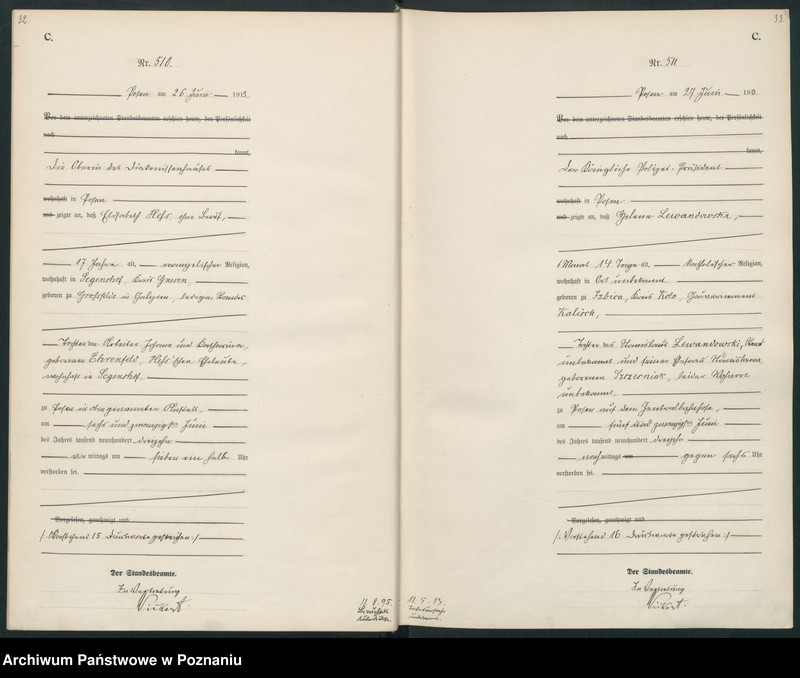 32.
C.
Nr. 510.
Posen am 26 Juni 1913.
Vor dem unterzeichneten Standesbeamten erschien heute, der Persönlichkeit
nach
kannt,
Die Oberin des Diakonissenhauses
wohnhaft in Posen
und zeigte an, daß Elisabeth Hess, ohne Beruf,
17 Jahre alt, evangelischer Religion,
wohnhaft in Segenshof, Kreis
geboren zu in Galizien, ledigen Standes
Tochter der Arbeiter Johann und
geborenen Ehrenfeld, Hess'schen Eheleute,
wohnhaft in Segenshof,
zu Posen in obengenannter Anstalt,
am sechs und zwanzigsten Juni
des Jahres tausend neunhundert dreizehn
vormittags um sieben ein halb Uhr
verstorben sei.
Vorgelesen, genehmigt und
/: Vorstehend 15 Druckworte gestrichen :/
Der Standesbeamte.
In Vertretung
11. 8. 95.
33.
C.
Nr. 511
Posen am 27 Juni 1913.
Vor dem unterzeichneten Standesbeamten erschien heute, der Persönlichkeit
nach
kannt,
Der Königliche Polizei-Präsident
wohnhaft in Posen
und zeigte an, daß Helene Lewandowska,
1 Monat 14 Tage alt, katholischer Religion,
wohnhaft in Ort unbekannt
geboren zu Izbica, Kreis Kolo, Gouvernement
Kalisch,
Tochter des Stanislaus Lewandowski, Stand
unbekannt und seiner Ehefrau
geborenen Szczerniak, beider Wohnort
unbekannt
zu Posen auf dem Zentralbahnhofe,
am fünf und zwanzigsten Juni
des Jahres tausend neunhundert dreizehn
nachmittags um gegen sechs Uhr
verstorben sei.
Vorgelesen, genehmigt und
/: Vorstehend 16 Druckworte gestrichen :/
Der Standesbeamte.
In Vertretung
Archiwum Państwowe w Poznaniu